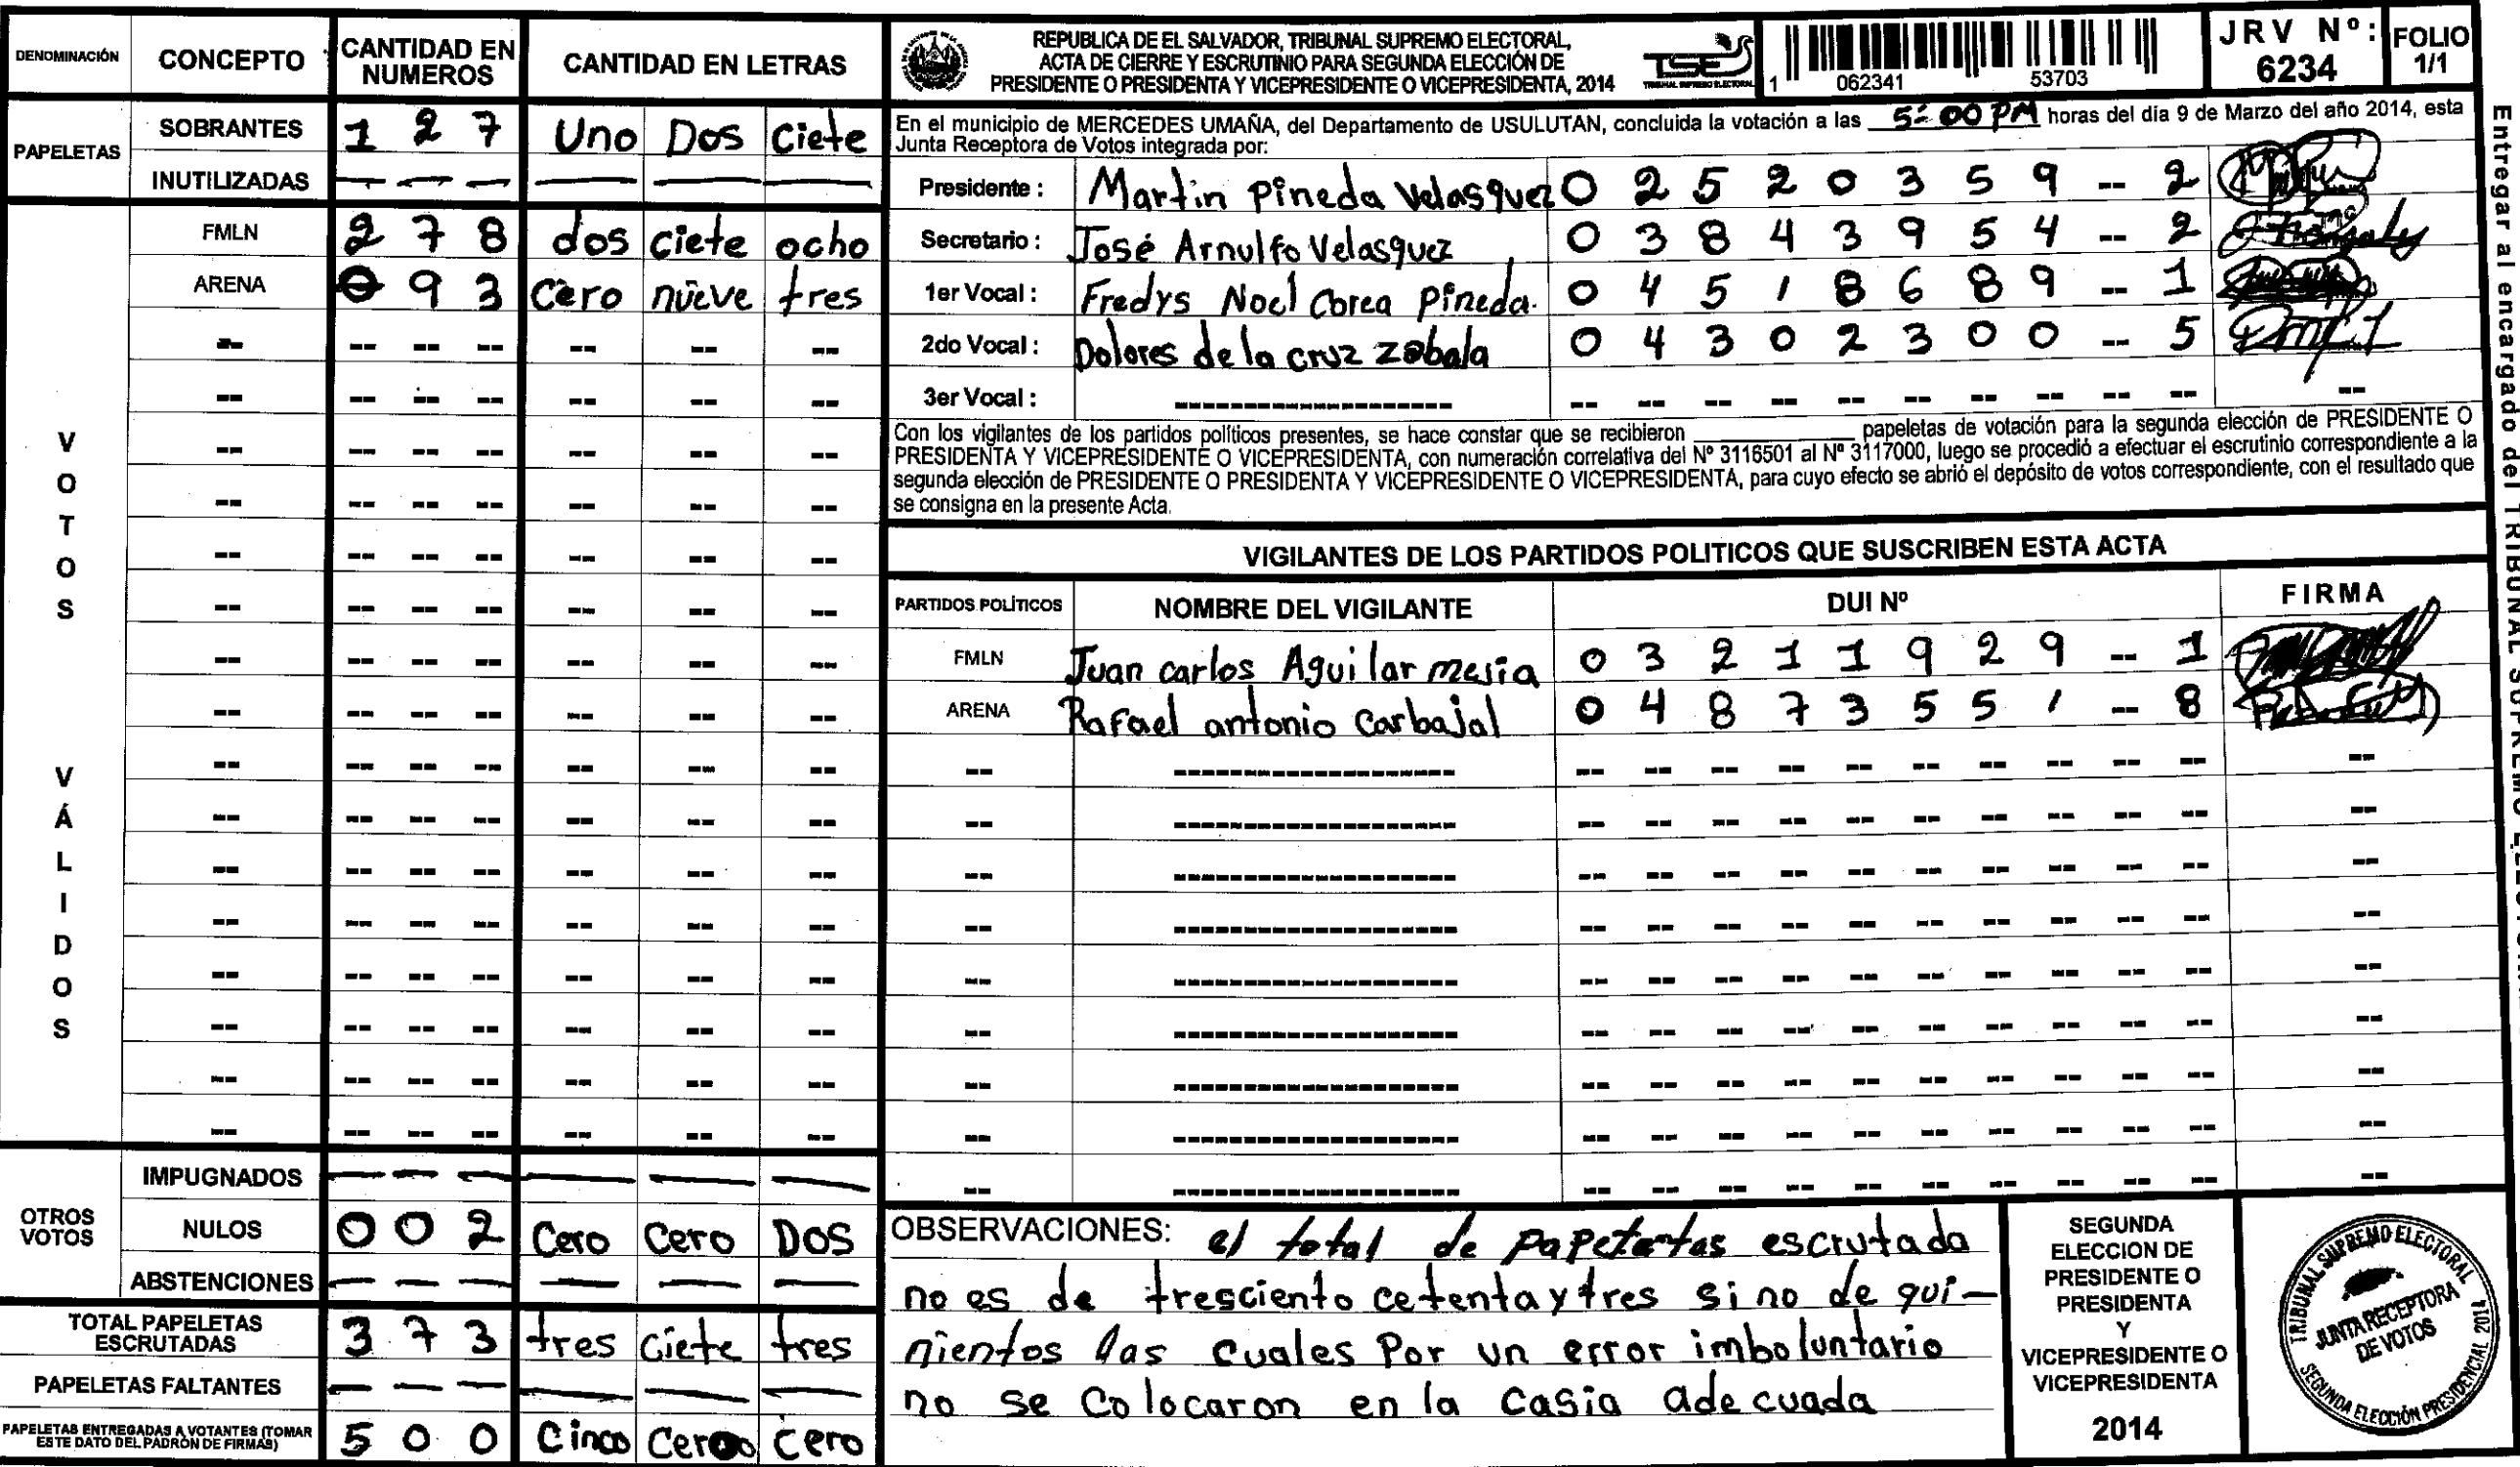 DENOMINACIÓN CONCEPTO CANTIDAD EN NUMEROS CANTIDAD EN LETRAS
PAPELETAS
SOBRANTES 1 2 7 Uno Dos Ciete
INUTILIZADAS — — — — — —
VOTOS VÁLIDOS
FMLN 2 7 8 dos ciete ocho
ARENA 0 9 3 Cero nueve tres
OTROS VOTOS
IMPUGNADOS — — — — — —
NULOS 0 0 2 Cero Cero DOS
ABSTENCIONES — — — — — —
TOTAL PAPELETAS ESCRUTADAS 3 7 3 tres Ciete tres
PAPELETAS FALTANTES — — — — — —
PAPELETAS ENTREGADAS A VOTANTES (TOMAR ESTE DATO DEL PADRÓN DE FIRMAS) 5 0 0 Cinco Cero Cero
REPUBLICA DE EL SALVADOR, TRIBUNAL SUPREMO ELECTORAL,
ACTA DE CIERRE Y ESCRUTINIO PARA SEGUNDA ELECCIÓN DE
PRESIDENTE O PRESIDENTA Y VICEPRESIDENTE O VICEPRESIDENTA, 2014
TSE
TRIBUNAL SUPREMO ELECTORAL
1 062341 53703
JRV Nº: 6234
FOLIO 1/1
En el municipio de MERCEDES UMAÑA, del Departamento de USULUTAN, concluida la votación a las 5:00 PM horas del día 9 de Marzo del año 2014, esta
Junta Receptora de Votos integrada por:
Presidente : Martin Pineda Velasquez 0 2 5 2 0 3 5 9 -- 2
Secretario : José Arnulfo Velasquez 0 3 8 4 3 9 5 4 -- 2
1er Vocal : Fredys Noel Corea Pineda. 0 4 5 1 8 6 8 9 -- 1
2do Vocal : Dolores de la cruz zabala 0 4 3 0 2 3 0 0 -- 5
3er Vocal : -- -- -- -- -- -- -- -- -- --
Con los vigilantes de los partidos políticos presentes, se hace constar que se recibieron ____ papeletas de votación para la segunda elección de PRESIDENTE O
PRESIDENTA Y VICEPRESIDENTE O VICEPRESIDENTA, con numeración correlativa del Nº 3116501 al Nº 3117000, luego se procedió a efectuar el escrutinio correspondiente a la
segunda elección de PRESIDENTE O PRESIDENTA Y VICEPRESIDENTE O VICEPRESIDENTA, para cuyo efecto se abrió el depósito de votos correspondiente, con el resultado que
se consigna en la presente Acta.
VIGILANTES DE LOS PARTIDOS POLITICOS QUE SUSCRIBEN ESTA ACTA
PARTIDOS POLÍTICOS NOMBRE DEL VIGILANTE DUI Nº FIRMA
FMLN Juan carlos Aguilar mesia 0 3 2 1 1 9 2 9 -- 1
ARENA Rafael antonio Carbajal 0 4 8 7 3 5 5 1 -- 8
OBSERVACIONES: el total de papeletas escrutada
no es de tresciento cetenta y tres sino de qui-
nientos las cuales Por un error imboluntario
no se Colocaron en la Casia adecuada
SEGUNDA
ELECCION DE
PRESIDENTE O
PRESIDENTA
Y
VICEPRESIDENTE O
VICEPRESIDENTA
2014
TRIBUNAL SUPREMO ELECTORAL
JUNTA RECEPTORA
DE VOTOS
SEGUNDA ELECCIÓN PRESIDENCIAL 2014
Entregar al encargado del TRIBUNAL SUPREMO